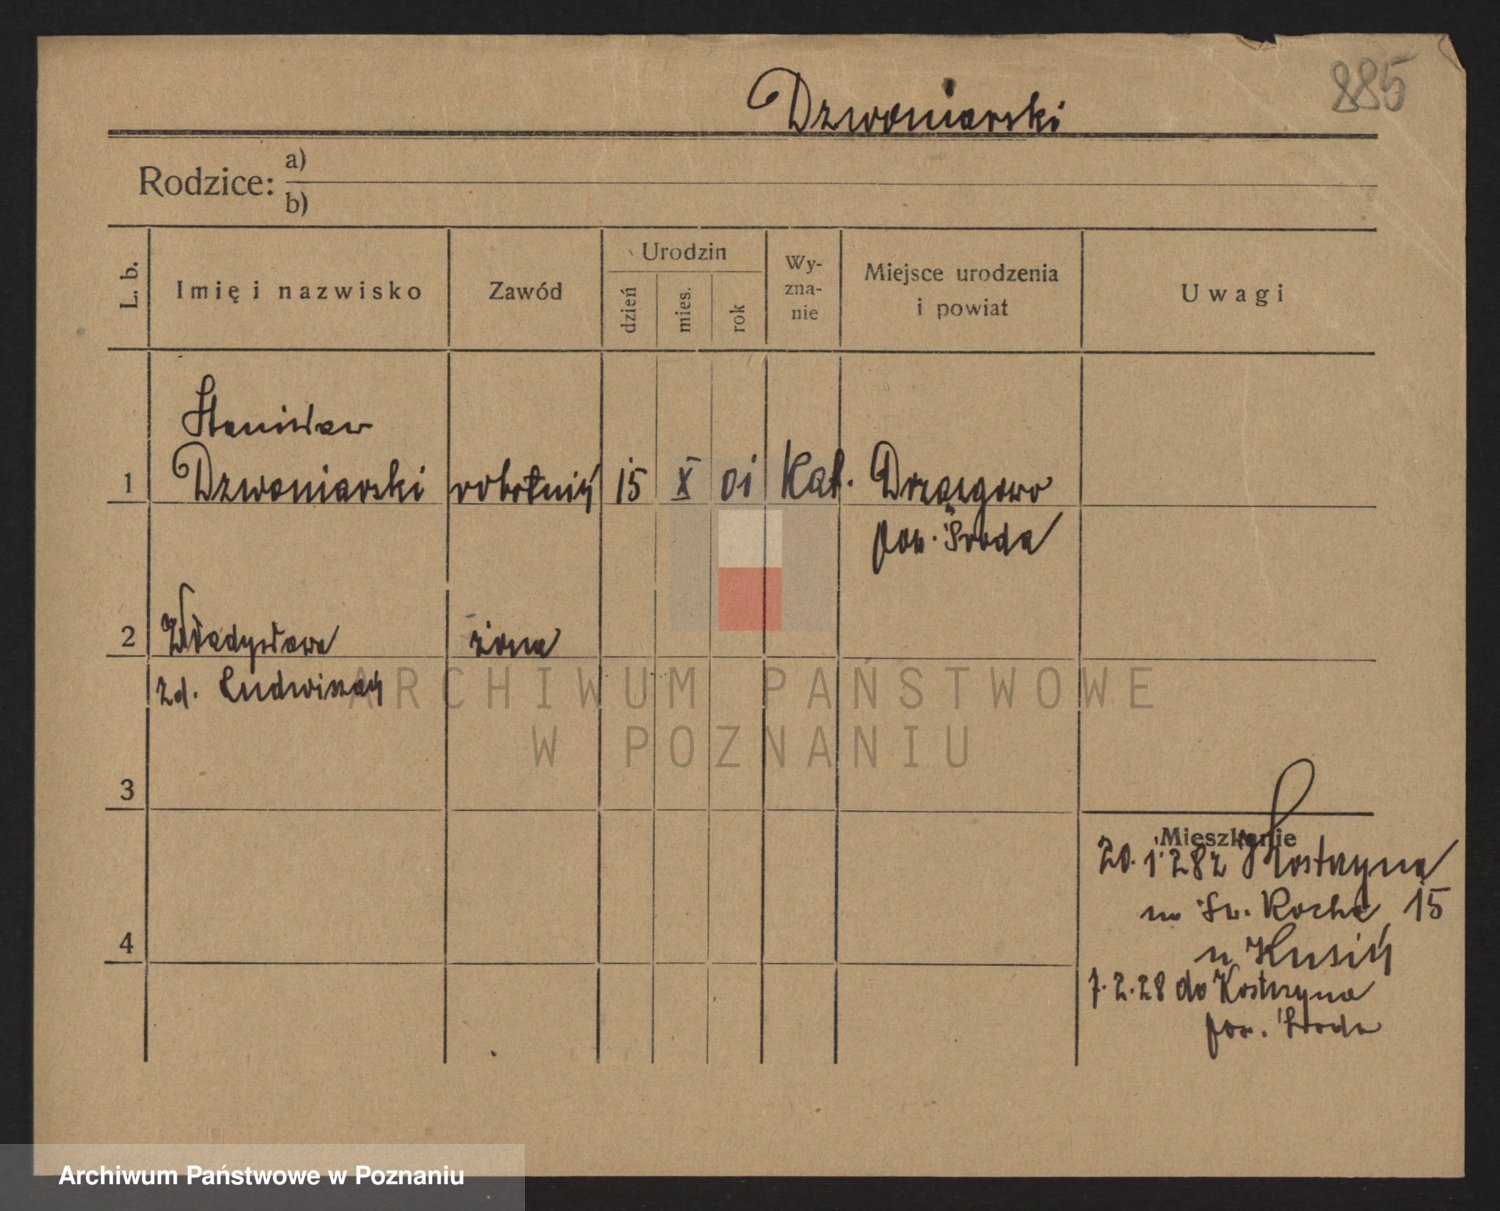 885
Dzwoniarski
Rodzice: a)
b)
L. b.
Imię i nazwisko
Zawód
Urodzin
dzień
mies.
rok
Wy-
zna-
nie
Miejsce urodzenia
i powiat
Uwagi
Stanisław
1 Dzwoniarski robotnik 15 X 01 Kat. Drzązgowo
pow. Środa
2 Władysława żona
zd. Ludwiczak
ARCHIWUM PAŃSTWOWE
W POZNANIU
3
Mieszkanie
20. 1. 28 z Kostrzyna
Św. Rocha 15
u Kusik
4
7. 2. 28 do Kostrzyna
pow. Środa
Archiwum Państwowe w Poznaniu